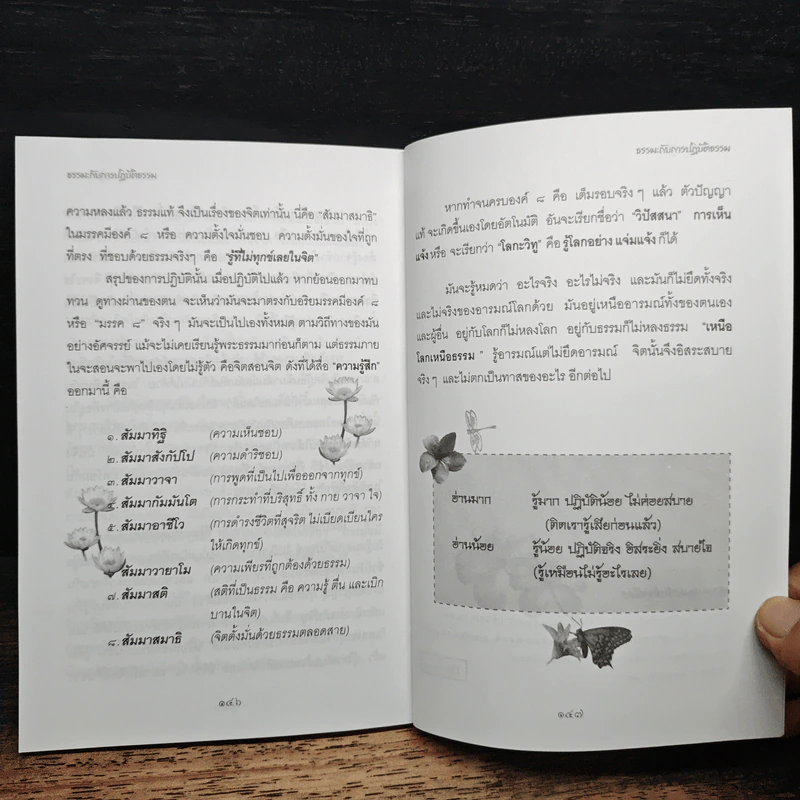 ธรรมะกับการปฏิบัติธรรม
ความหลงแล้ว ธรรมแท้ จึงเป็นเรื่องของจิตเท่านั้น นี่คือ "สัมมาสมาธิ"
ในมรรคมีองค์ ๘ หรือ ความตั้งใจมั่นชอบ ความตั้งมั่นของใจที่ถูก
ที่ตรง ที่ชอบด้วยธรรมจริงๆ คือ "รู้ที่ไม่ทุกข์เลยในจิต"
สรุปของการปฏิบัตินั้น เมื่อปฏิบัติไปแล้ว หากย้อนออกมาทบ
ทวน ดูทางผ่านของตน จะเห็นว่ามันจะมาตรงกับอริยมรรคมีองค์ ๘
หรือ "มรรค ๘" จริงๆ มันจะเป็นไปเองทั้งหมด ตามวิถีทางของมัน
อย่างอัศจรรย์ แม้จะไม่เคยเรียนรู้พระธรรมมาก่อนก็ตาม แต่ธรรมภาย
ในจะสอนจะพาไปเองโดยไม่รู้ตัว คือจิตสอนจิต ดังที่ได้สื่อ "ความรู้สึก"
ออกมานี้ คือ
๑. สัมมาทิฐิ (ความเห็นชอบ)
๒. สัมมาสังกัปโป (ความดำริชอบ)
๓. สัมมาวาจา (การพูดที่เป็นไปเพื่อออกจากทุกข์)
๔. สัมมากัมมันโต (การกระทำที่บริสุทธิ์ ทั้ง กาย วาจา ใจ)
๕. สัมมาอาชีโว (การดำรงชีวิตที่สุจริต ไม่เบียดเบียนใคร
ให้เกิดทุกข์)
๖. สัมมาวายาโม (ความเพียรที่ถูกต้องด้วยธรรม)
๗. สัมมาสติ (สติที่เป็นธรรม คือ ความรู้ ตื่น และเบิก
บานในจิต)
๘. สัมมาสมาธิ (จิตตั้งมั่นด้วยธรรมตลอดสาย)
๑๔๖
ธรรมะกับการปฏิบัติธรรม
หากทำจนครบองค์ ๘ คือ เต็มรอบจริงๆ แล้ว ตัวปัญญา
แท้ จะเกิดขึ้นเองโดยอัตโนมัติ อันจะเรียกชื่อว่า "วิปัสสนา" การเห็น
แจ้ง หรือ จะเรียกว่า "โลกะวิทู" คือ รู้โลกอย่าง แจ่มแจ้ง ก็ได้
มันจะรู้หมดว่า อะไรจริง อะไรไม่จริง และมันก็ไม่ยึดทั้งจริง
และไม่จริงของอารมณ์โลกด้วย มันอยู่เหนืออารมณ์ทั้งของตนเอง
และผู้อื่น อยู่กับโลกก็ไม่หลงโลก อยู่กับธรรมก็ไม่หลงธรรม "เหนือ
โลกเหนือธรรม " รู้อารมณ์แต่ไม่ยึดอารมณ์ จิตนั้นจึงอิสระสบาย
จริงๆ และไม่ตกเป็นทาสของอะไร อีกต่อไป
อ่านมาก รู้มาก ปฏิบัติน้อย ไม่ค่อยสบาย
(ติดเรารู้เสียก่อนแล้ว)
อ่านน้อย รู้น้อย ปฏิบัติจริง อิสระยิ่ง สบายใจ
(รู้เหมือนไม่รู้อะไรเลย)
๑๔๗